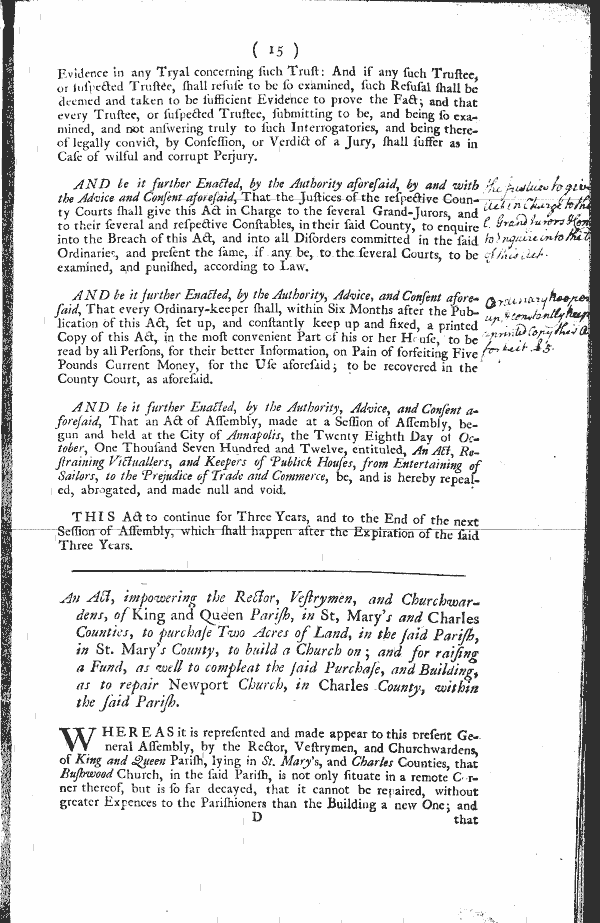 ( 15 )
Evidence in any Tryal concerning ſuch Truſt: And if any ſuch Truſtee,
or ſuſpected Truſtee, ſhall refuſe to be ſo examined, ſuch Refuſal ſhall be
deemed and taken to be ſufficient Evidence to prove the Fact; and that
every Truſtee, or ſuſpected Truſtee, ſubmitting to be, and being ſo exa-
mined, and not anſwering truly to ſuch Interrogatories, and being there-
of legally convict, by Confeſſion, or Verdict of a Jury, ſhall ſuffer as in
Caſe of wilful and corrupt Perjury.
AND be it further Enacted, by the Authority aforeſaid, by and with
the Advice and Conſent aforeſaid, That the Juſtices of the reſpective Coun-
ty Courts ſhall give this Act in Charge to the ſeveral Grand-Jurors, and
to their ſeveral and reſpective Conſtables, in their ſaid County, to enquire
into the Breach of this Act, and into all Diſorders committed in the ſaid
Ordinaries, and preſent the ſame, if any be, to the ſeveral Courts, to be
examined, and puniſhed, according to Law.
the juſtices to give
act in Charge to the
Grand Jurors &
to inquire into the
of this act.
AND be it further Enacted, by the Authority, Advice, and Conſent afore-
ſaid, That every Ordinary-keeper ſhall, within Six Months after the Pub-
lication of this Act, ſet up, and conſtantly keep up and fixed, a printed
Copy of this Act, in the moſt convenient Part of his or her Houſe, to be
read by all Perſons, for their better Information, on Pain of forfeiting Five
Pounds Current Money, for the Uſe aforeſaid; to be recovered in the
County Court, as aforeſaid.
Ordinary keeper
up, & conſtantly keep
printed copy this
forfeit £5.
AND be it further Enacted, by the Authority, Advice, and Conſent a-
foreſaid, That an Act of Aſſembly, made at a Seſſion of Aſſembly, be-
gun and held at the City of Annapolis, the Twenty Eighth Day of Oc-
tober, One Thouſand Seven Hundred and Twelve, entituled, An Act, Re-
ſtraining Victuallers, and Keepers of Publick Houſes, from Entertaining of
Sailors, to the Prejudice of Trade and Commerce, be, and is hereby repeal-
ed, abrogated, and made null and void.
THIS Act to continue for Three Years, and to the End of the next
Seſſion of Aſſembly, which ſhall happen after the Expiration of the ſaid
Three Years.
An Act, impowering the Rector, Veſtrymen, and Churchwar-
dens, of King and Queen Pariſh, in St, Mary's and Charles
Counties, to purchaſe Two Acres of Land, in the ſaid Pariſh,
in St. Mary's County, to build a Church on; and for raiſing
a Fund, as well to compleat the ſaid Purchaſe, and Building,
as to repair Newport Church, in Charles County, within
the ſaid Pariſh.
WHEREAS it is repreſented and made appear to this preſent Ge-
neral Aſſembly, by the Rector, Veſtrymen, and Churchwardens,
of King and Queen Pariſh, lying in St. Mary's, and Charles Counties, that
Buſhwood Church, in the ſaid Pariſh, is not only ſituate in a remote Cor-
ner thereof, but is ſo far decayed, that it cannot be repaired, without
greater Expences to the Pariſhioners than the Building a new One; and
D
that